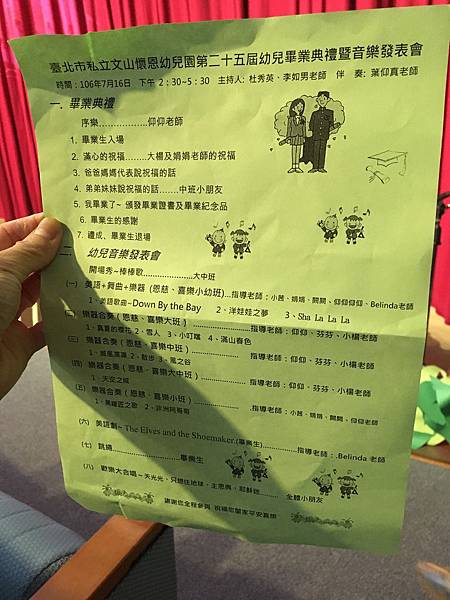 臺北市私立文山懷恩幼兒園第二十五屆幼兒畢業典禮暨音樂發表會
時間：106年7月16日 下午 2：30~5：30 主持人: 杜秀英、李如男老師 伴 奏: 葉仰真老師
一. 畢業典禮
序樂..................仰仰老師
1. 畢業生入場
2. 滿心的祝福........大楊及娟娟老師的祝福
3. 爸爸媽媽代表說祝福的話
4. 弟弟妹妹說祝福的話.......中班小朋友
5. 我畢業了~ 頒發畢業證書及畢業紀念品
6. 畢業生的感謝
7. 禮成、畢業生退場
二. 幼兒音樂發表會
開場秀~棒棒歌......................大中班
(一) 美語+舞曲+樂器 (恩慈、喜樂小幼班)...指導老師：小茜、娟娟、闕闕、仰仰仰仰、Belinda老師
1、美語歌曲~Down By the Bay 2、洋娃娃之夢 3、Sha La La La
(二) 樂器合奏（恩慈、喜樂大班）..........................指導老師：仰仰、芬芬、小楊老師
1、真善的櫻花 2、雪人 3、小叮噹 4、滿山春色
(三) 樂器合奏（恩慈、喜樂中班）..........................指導老師：仰仰、芬芬、小楊老師
2、散步 3、風之谷
(四) 樂器合奏（恩慈、喜樂大中班）..........................指導老師：仰仰、芬芬、小楊老師
1、天空之城
(五) 樂器合奏（恩慈、喜樂小班）.........................指導老師：小茜、娟娟、闕闕、仰仰老師
1、黑鐵匠之歌 2、非洲阿哥哥
(六) 美語劇~ The Elves and the Shoemaker.(畢業生)............指導老師：.Belinda 老師
(七) 跳繩....................畢業生
(八) 歡樂大合唱~ 天光光、只想住地球、主恩典、耶穌............. 全體小朋友
謝謝您全程參與 祝福您闔家平安喜樂